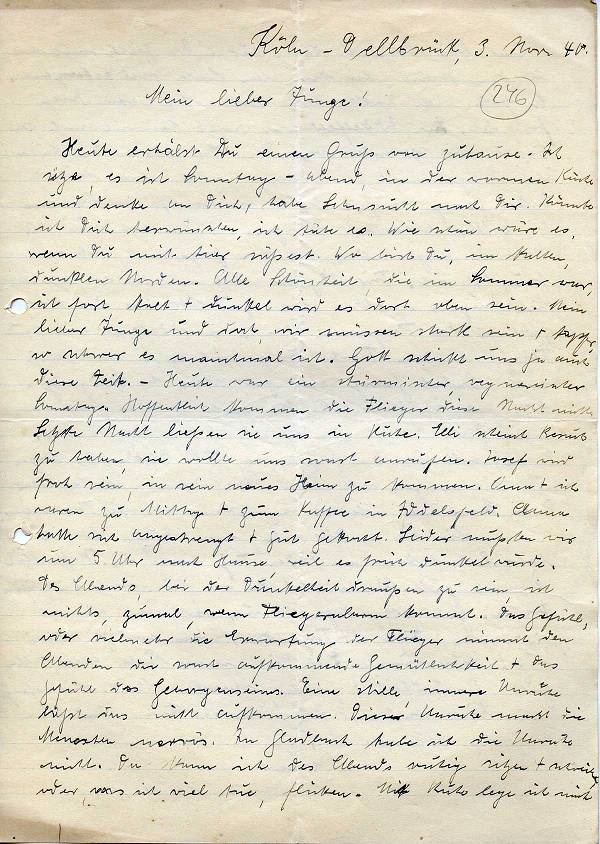 Köln – Dellbrück, 3. Nov. 40.
246
Mein lieber Junge!
Heute erhälst Du einen Gruß von zuhause. Ich
sitze, es ist Sonntag – abend, in der warmen Küche
und denke an Dich, habe Sehnsucht nach Dir. Könnte
ich Dich herwünschen, ich täte es. Wie schön wäre es,
wenn Du mit hier säßest. Wo bist Du, im kalten,
dunklen Norden. Alle Schönheit, die im Sommer war,
ist fort kalt + dunkel wird es dort oben sein. Mein
lieber Junge und doch, wir müssen stark sein + tapfer,
so schwer es manchmal ist. Gott schickt uns ja auch
diese Zeit. – Heute war ein stürmischer regnerischer
Sonntag. Hoffentlich kommen die Flieger diese Nacht nicht.
Letzte Nacht ließen sie uns in Ruhe. Elli scheint Besuch
zu haben, sie wollte uns sonst anrufen. Josef wird
froh sein, in sein neues Heim zu kommen. Anna + ich
waren zu Mittag + zum Kaffee in Iddelsfeld. Anna
hatte sich angestrengt + gut gekocht. Leider mußten wir
um 5 Uhr nach Hause, weil es früh dunkel wurde.
Des Abends, bei der Dunkelheit draußen zu sein, ist
nichts, zumal, wenn Fliegeralarm kommt. Das Gefühl,
oder vielmehr die Erwartung der Flieger nimmt den
Abenden die sonst aufkommende Gemütlichkeit + das
Gefühl des Geborgenseins. Eine stille, innere Unruhe
läßt das nicht aufkommen. Diese Unruhe macht die
Menschen nervös. In Gladbach habe ich die Unruhe
nicht. Da kann ich des Abends ruhig sitzen + schreiben
oder, was ich viel tue, flicken. Mit Ruhe lege ich mich